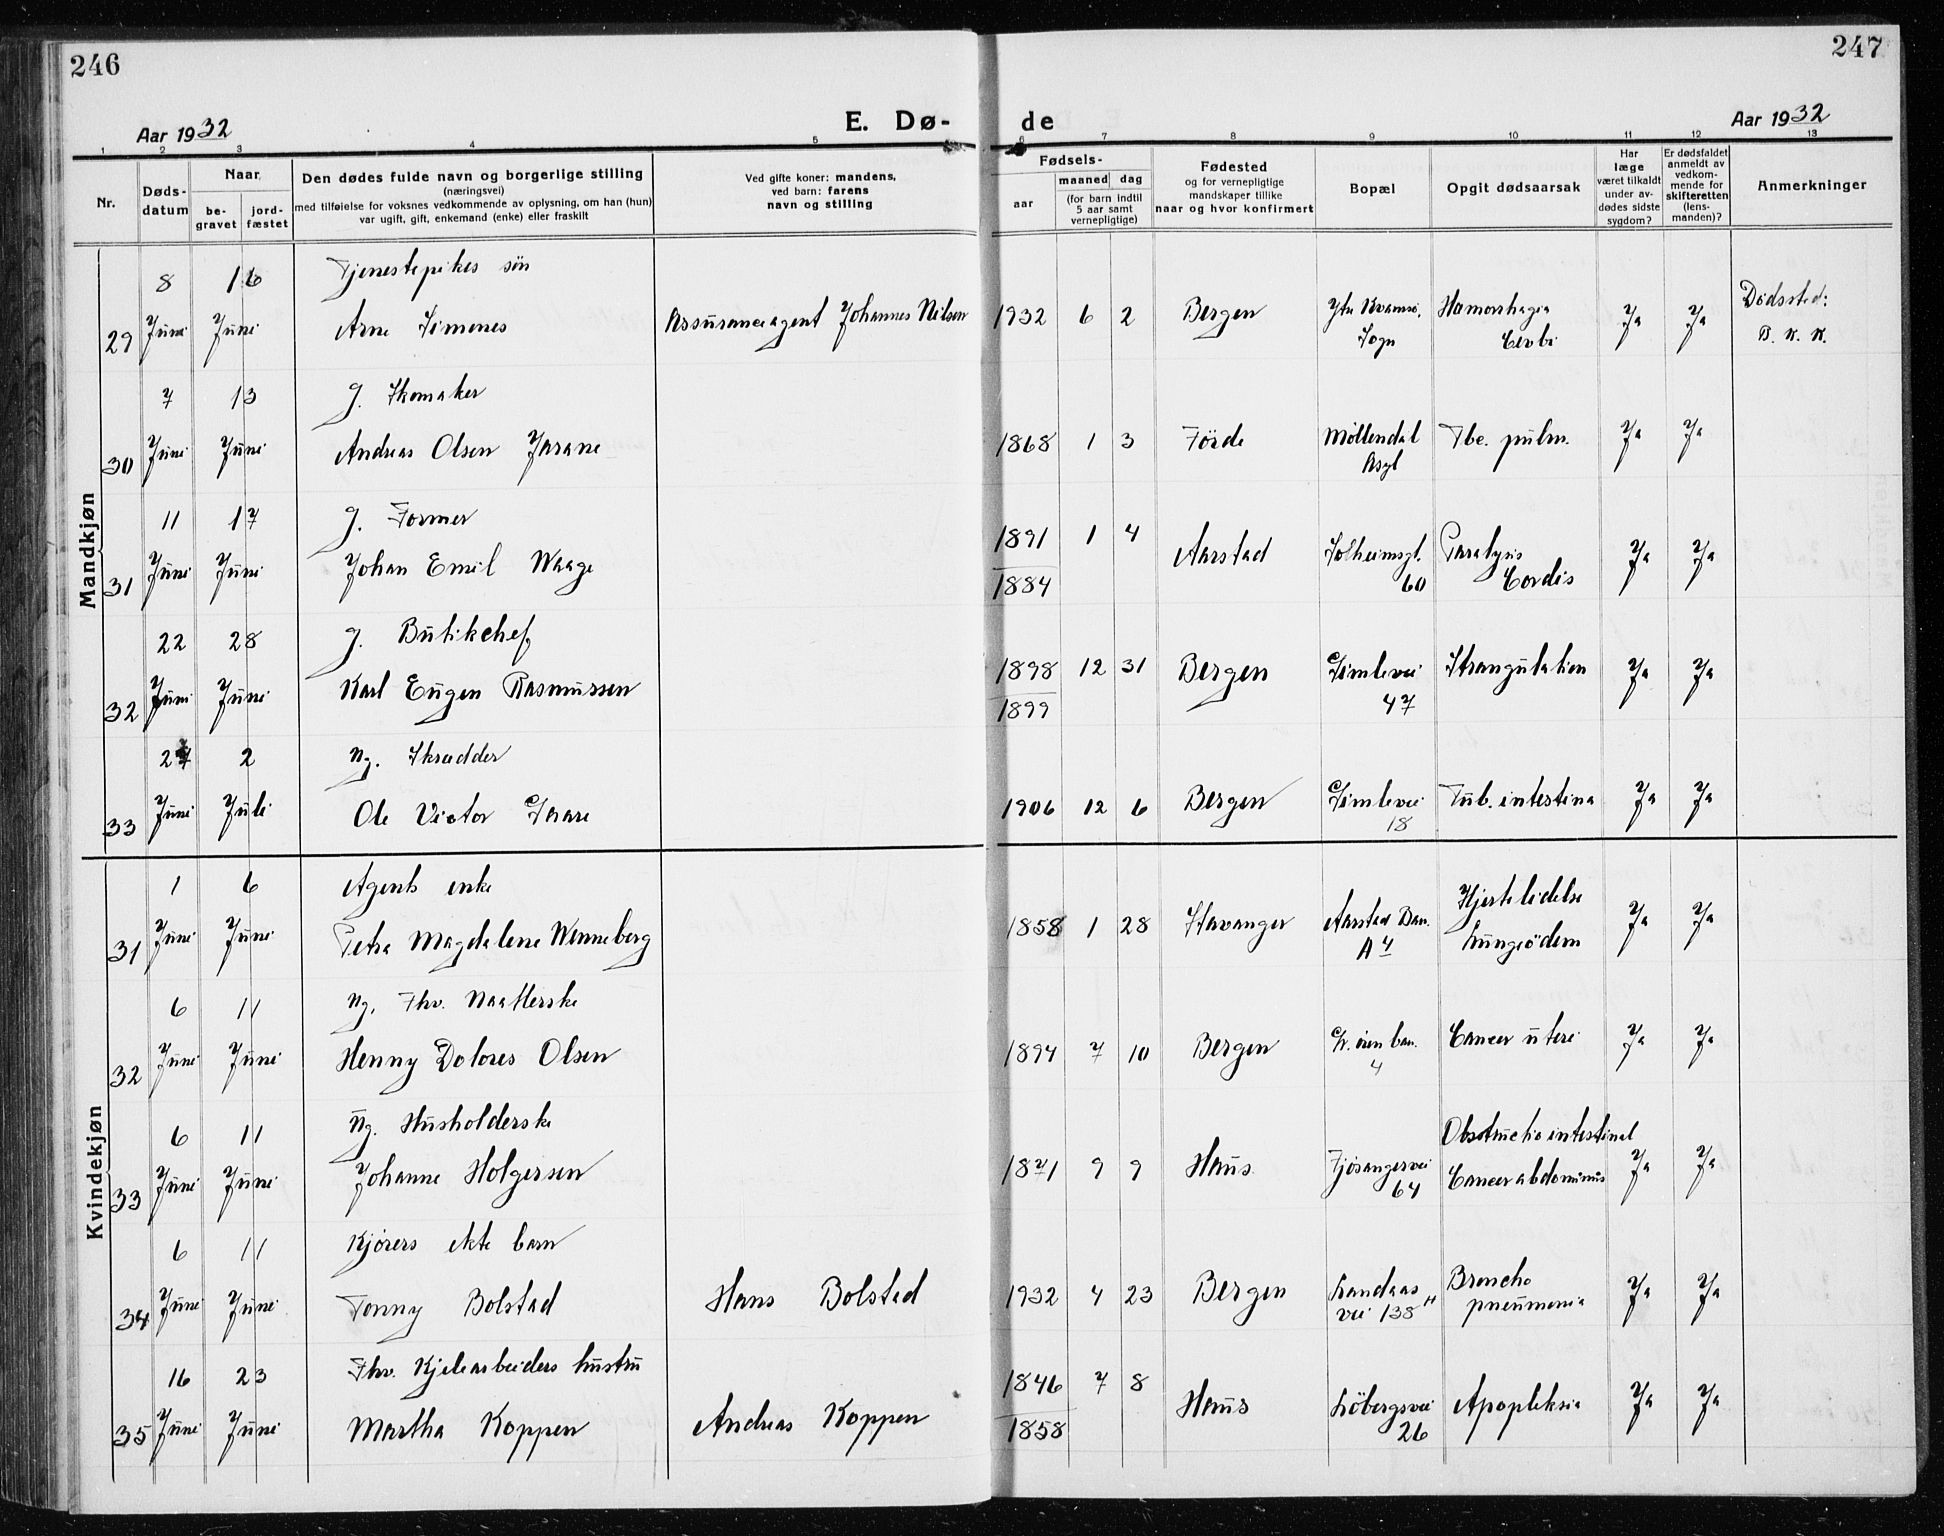 246
247
Aar 1932
E. Dø-
de
Aar 1932
1 2 3 4 5 6 7 8 9 10 11 12 13
Nr.
Døds-
datum
Naar
be-
gravet
jord-
fæstet
Den dødes fulde navn og borgerlige stilling
(næringsvei)
med tilføielse for voksnes vedkommende av oplysning, om han (hun)
var ugift, gift, enkemand (enke) eller fraskilt
Ved gifte koner: mandens,
ved barn: farens
navn og stilling
Fødsels-
aar
maaned dag
(for barn indtil
5 aar samt
vernepligtige)
Fødested
og for vernepligtige
mandskaper tillike
naar og hvor konfirmert
Bopæl
Opgit dødsaarsak
Har
læge
været tilkaldt
under av-
dødes sidste
sygdom?
Er dødsfaldet
anmeldt av
vedkom-
mende for
skifteretten
(lens-
manden)?
Anmerkninger
Mandkjøn
8 16 Tjenestepikes søn
29 Juni Juni Arne Simenes Assuranceagent Johannes Nilsen 1932 6 2 Bergen Ytre Kvamsø, Sogn Hæmorrhagia Cerebri Ja Ja Dødssted: B. K. K.
7 13 g. Skomaker
30 Juni Juni Andreas Olsen 1868 1 3 Førde Møllendal Asyl Tbc. pulm. Ja Ja
11 17 g. Former
31 Juni Juni Johan Emil Waage 1891 1 4 Aarstad Solheimsgt. 60 Paralysis Cordis Ja Ja
1884
22 28 g. Butikchef
32 Juni Juni Karl Eugen Rasmussen 1898 12 31 Bergen Gimlevei 47 Strangulation Ja Ja
1899
27 2 Ug. Skrædder
33 Juni Juli Ole Victor 1906 12 6 Bergen Gimlevei 18 Tub. intestina Ja Ja
Kvindekjøn
1 6 Agents enke
31 Juni Juni Petra Magdalene Wenneberg 1858 1 28 Stavanger Aarstad Bar. A 4 Hjertelidelse Lungeødem Ja Ja
6 11 Ug. Fhv. Maatterske
32 Juni Juni Henny Dolores Olsen 1894 7 10 Bergen 4 Cancer uteri Ja Ja
6 11 Ug. Husholderske
33 Juni Juni Johanne Holgersen 1871 9 9 Haus Fjøsangervei 64 Obstructio intestinal Cancer abdominis Ja Ja
6 11 Kjørers ekte barn
34 Juni Juni Tonny Bolstad Hans Bolstad 1932 4 23 Bergen Landaas vei 138 H Broncho pneumonia Ja Ja
16 23 Fhv. Kjelearbeiders hustru
35 Juni Juni Martha Koppen Andreas Koppen 1846 7 8 Haus Løbergsvei 26 Apopleksia Ja Ja
1858